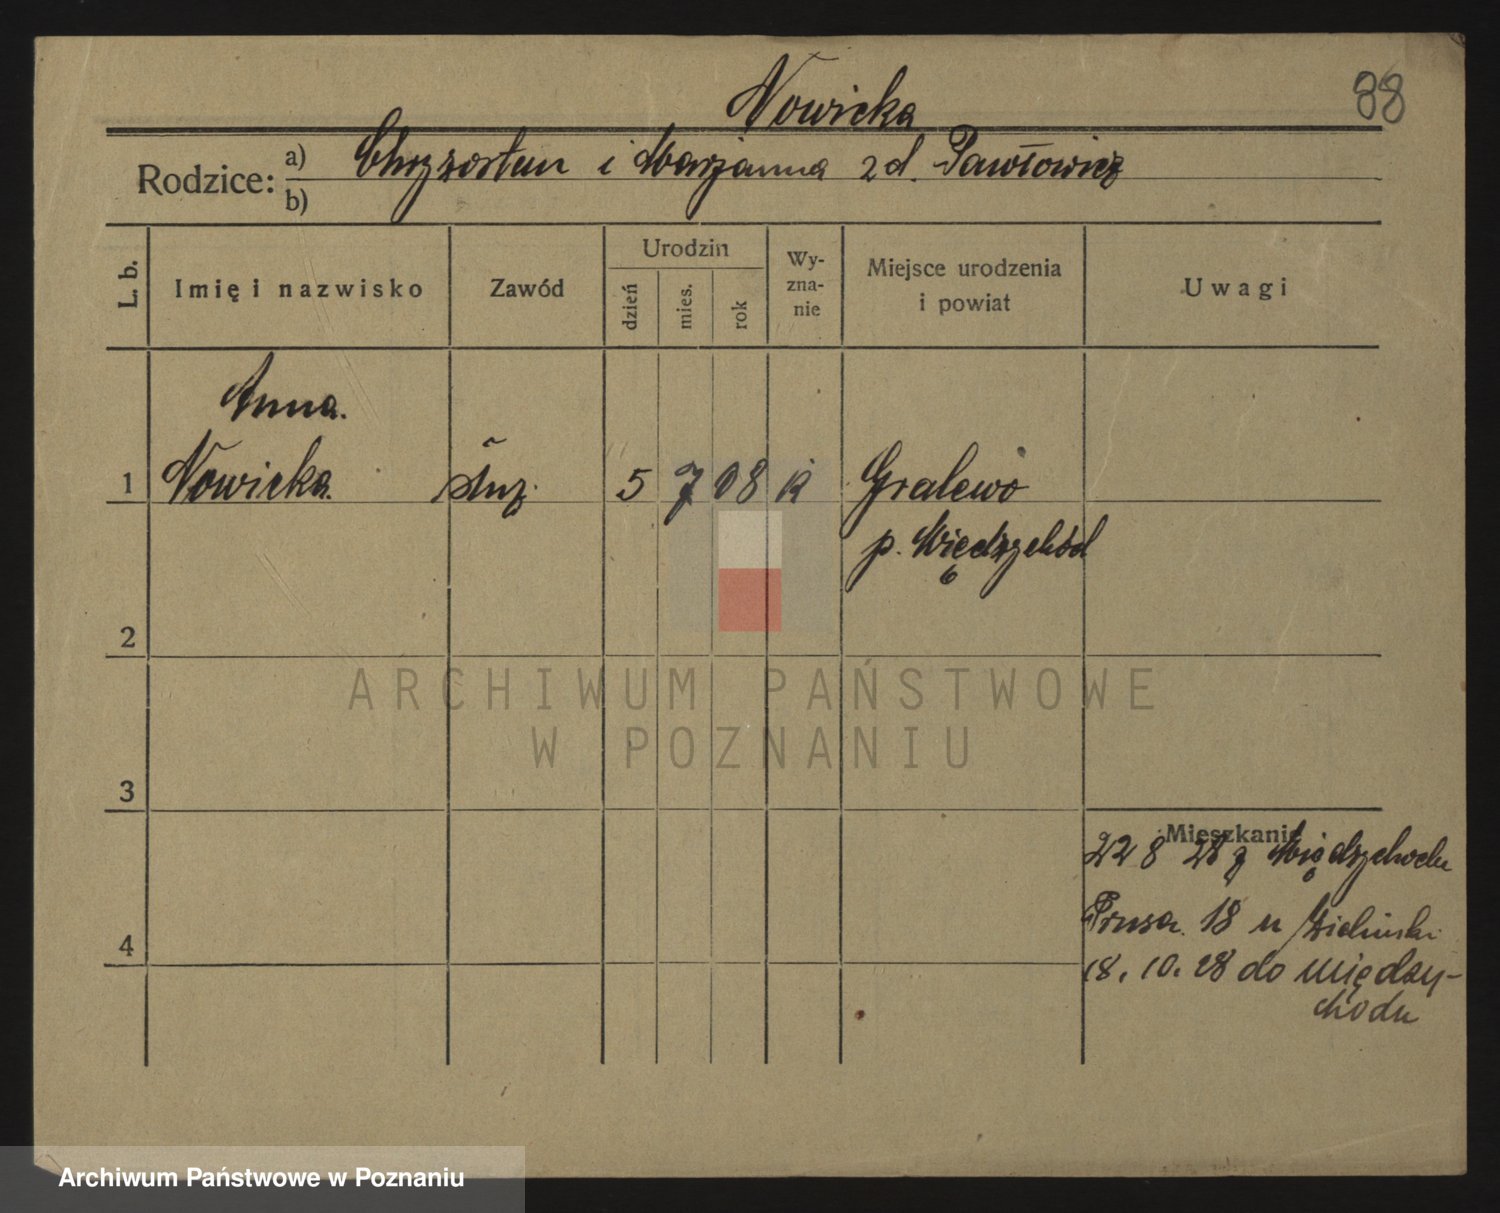 Nowicka
88
Rodzice: a) Chryzostan i Marjanna zd. Pawłowicz
b)
L. b.
Imię i nazwisko
Zawód
Urodzin
dzień
mies.
rok
Wy-
zna-
nie
Miejsce urodzenia
i powiat
Uwagi
Anna.
1 Nowicka służ. 5 7 08 k Gralewo
p. Międzychód
2
3
4
Mieszkanie
22 8 28 z Międzychodu
Prusa 18 u Zielinski
18. 10. 28 do Między-
chodu
ARCHIWUM PAŃSTWOWE
W POZNANIU
Archiwum Państwowe w Poznaniu